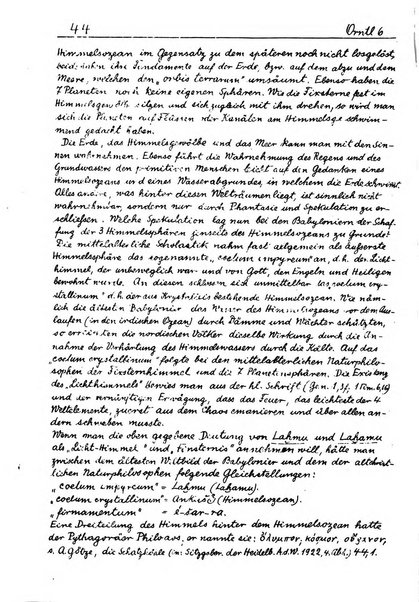 44 Orntl 6
Himmelsozean im Gegensatz zu dem späteren noch nicht losgelöst,
beide ruhen ihre Fundamente auf der Erde, bzw. auf dem abzu und dem
Meere, welchen den „orbis terrarum" umsäumt. Ebenso haben die
7 Planeten noch keine eigenen Sphären. Wie die Fixsterne fest im
Himmelsgewölbe sitzen und sich zugleich mit ihm drehen, so wird man
sich die Planeten auf Flüssen oder Kanälen am Himmelsgew. schwim-
mend gedacht haben.
Die Erde, das Himmelsgewölbe und das Meer kann man mit den Sin-
nen wahrnehmen. Ebenso führt die Wahrnehmung des Regens und des
Grundwassers den primitiven Menschen leicht auf den Gedanken eines
Himmelsozeans und eines Wasserabgrundes, in welchem die Erde schwimmt.
Alles andere, was hinter diesen Welträumen liegt, ist sinnlich nicht
wahrnehmbar, sondern nur durch Phantasie und Spekulation zu er-
schließen. Welche Spekulation lag nun bei den Babyloniern der Schaf-
fung der 3 Himmelsphären jenseits des Himmelsozeans zu Grunde?
Die mittelalterliche Scholastik nahm fast allgemein als äußerste
Himmelssphäre das sogenannte „coelum empyreum" an, d.h. der Licht-
himmel, der unbeweglich war und von Gott, den Engeln und Heiligen
bewohnt wurde. An diesen schloss sich unmittelbar das „coelum cry-
stallinum" d.h. der aus Krystalleis bestehende Himmelsozean. Wie näm-
lich die ältesten Babylonier das Wasser des Himmelsozeans vor dem Aus-
laufen (in den irdischen Ozean) durch Dämme und Wächter schützten,
so erreichten die nordischen Völker dieselbe Wirkung durch die An-
nahme der Verhärtung des Himmelswassers durch die Kälte. Auf das
„coelum crystallinum" folgte bei den mittelalterlichen Naturphiloso-
phen der Fixsternhimmel und die 7 Planetensphären. Die Existenz
des „Lichthimmels" bewies man aus der hl. Schrift (Gen. 1,3f, 1Tim. 6,16)
und der vernünftigen Erwägung, dass das Feuer, das leichteste der 4
Weltelemente, zuerst aus dem Chaos emanieren und über allen an-
dern schweben musste.
Wenn man die oben gegebene Deutung von Lahmu und Lahamu
als „Licht-Himmel" und „Finsternis" annehmen will, hätte man
zwischen dem ältesten Weltbild der Babylonier und dem der altchrist-
lichen Naturphilosophen folgende Gleichstellungen:
„coelum empyreum" = Lahmu (Lahamu).
„coelum crystallinum" = Ankišš (Himmelsozean).
„firmamentum" = é-šar-ra.
Eine Dreiteilung des Himmels hinter dem Himmelsozean hatte
der Pythagoräer Philoaus, er nannte sie: ὄλυμπος, κόσμος, οὐρανος,
s. A. Götze, die Schatzhöhle (in: Sitzgsber. der Heidelb. Ad.W. 1922, 4. Abh.) 44,1.